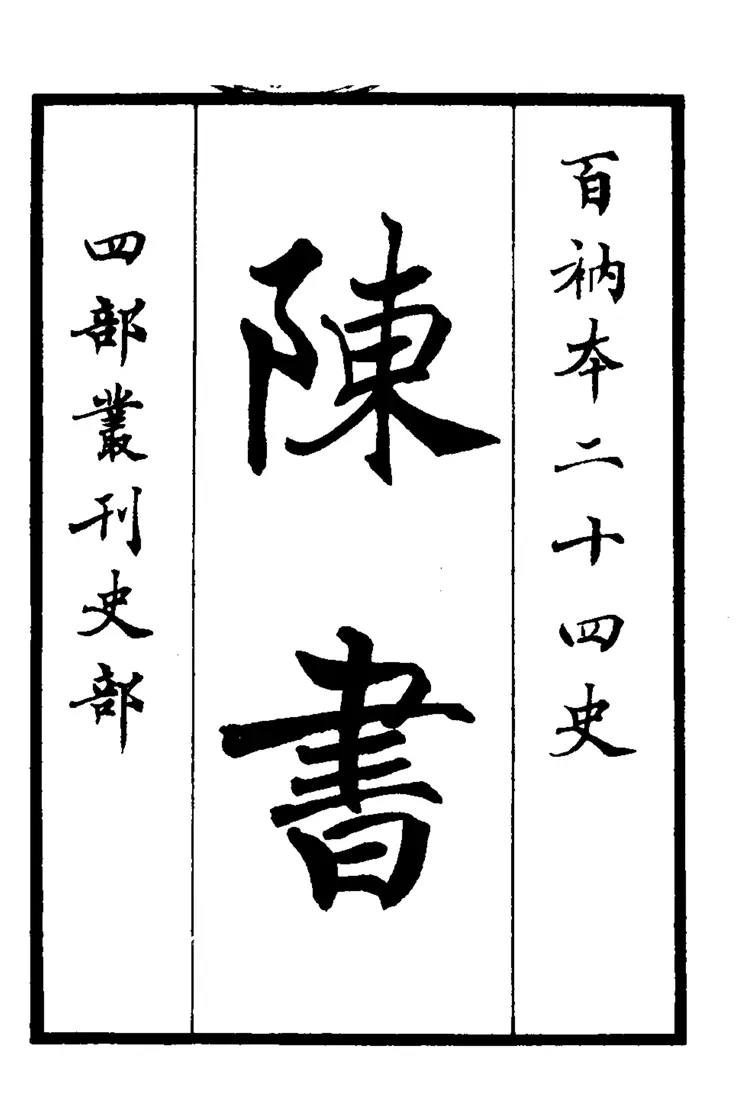 百衲本二十四史
陳書
四部叢刊史部